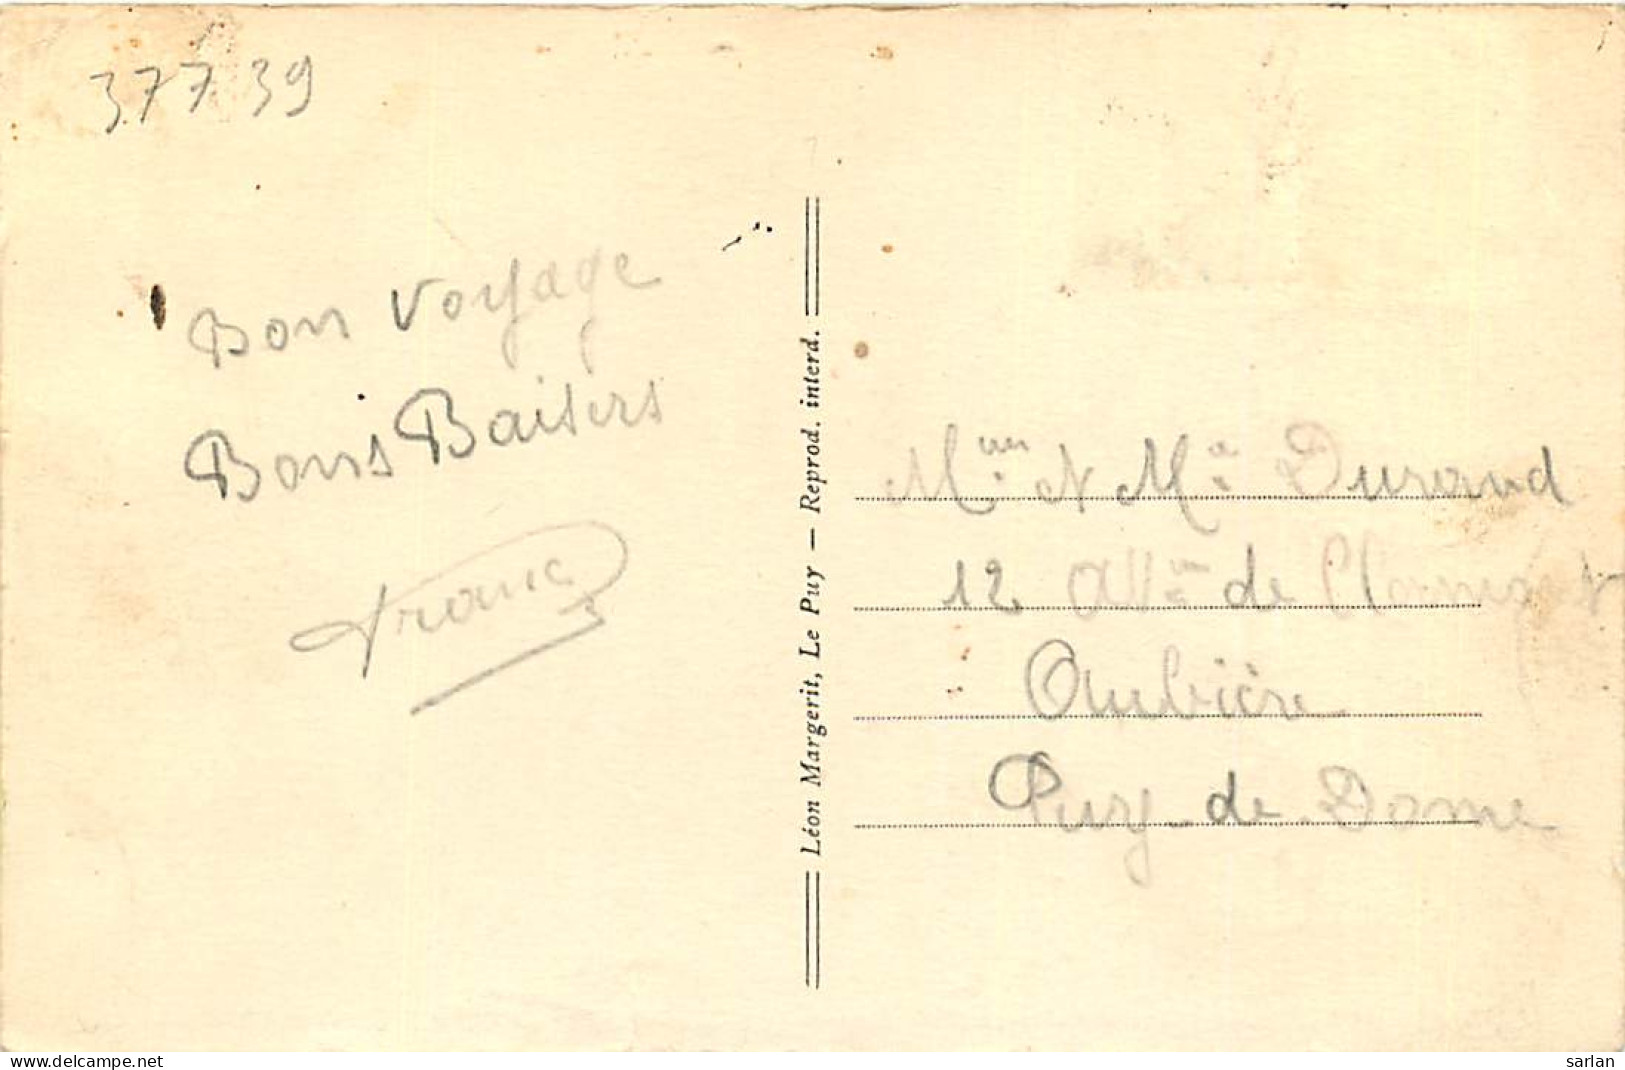 37739
Bon Voyage
Bons Baisers
Franc
Léon Margerit, Le Puy — Reprod. interd.
Durand
12 de Clermont
Aubière
Puy-de-Dome
www.delcampe.net
sarlan